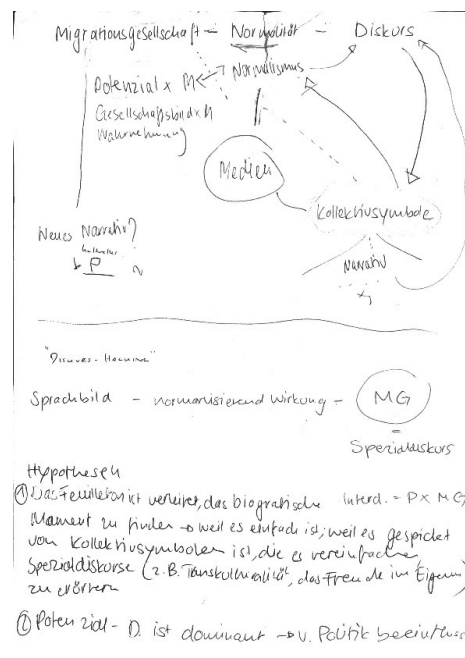 Migrationsgesellschaft – Normalität – Diskurs
Normalismus
Potenzial x M
Gesellschaftsbild x M
Wahrnehmung
Medien
Kollektivsymbole
Neues Narrativ?
P
Narrativ
Sprachbild – normalisierend Wirkung – MG
=
Spezialdiskurs
Hypothesen
① Das Feuilleton ist verleitet, das biografische Interd. = P x MG
Moment zu finden → weil es einfach ist, weil es gespickt
von Kollektivsymbolen ist, die es vereinfachen
Spezialdiskurse (z.B. Transkulturalität, das Fremde im Eigenen)
zu erörtern
② Potenzial – D. ist dominant → v. Politik